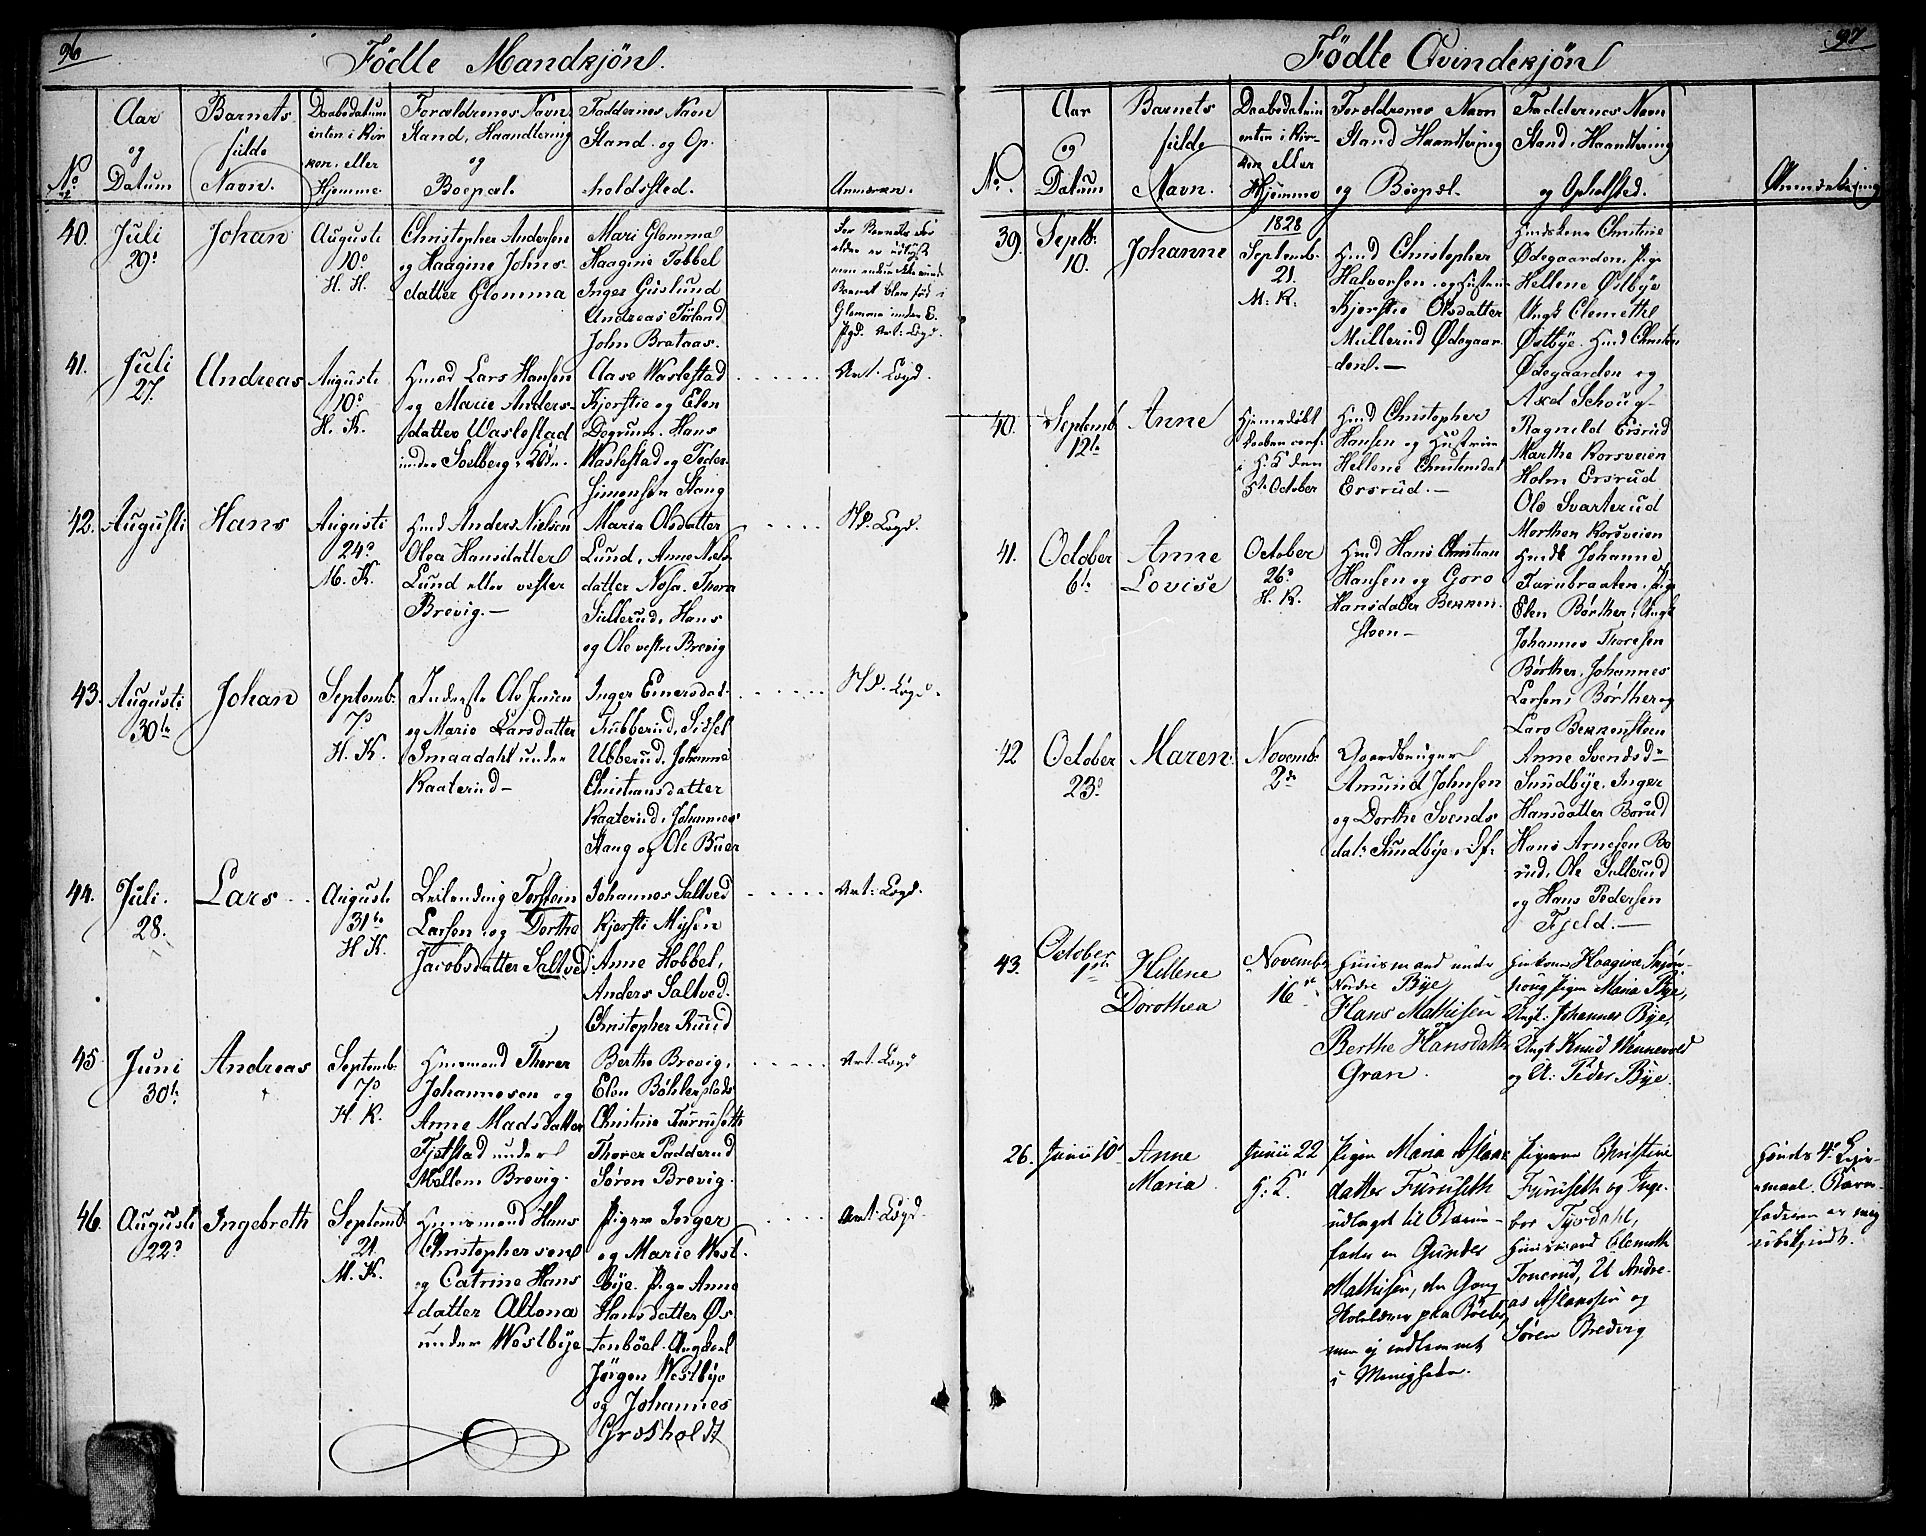 96
Fødte Mandkjön
No
Aar
og
Datum
Barnets
fulde
Navn.
Daabsdatum
enten i Kir-
ken, eller
Hjemme.
Forældrenes Navn
Stand, Haandtering
og
Boepæl.
Faddernes Navn
Stand og Op-
holdssted.
Anmærkn.
40.
Juli
29d
Johan
Augusti
10d
H. K.
Christopher Andersen
og Haagine Johns-
datter Glomma
Mari Glomma
Haagine Tobbel
Inger Guslund
Andreas Törland
John Brataas.
41.
Juli
27.
Andreas
Augusti
10d
H. K.
Huusmd Lars Hansen
og Marie Anders-
datter Waslestad
under Soelberg
Aase Waslestad
Kjerstie og Elen
Dogrum. Hans
Waslestad og Peder
Simensen Stang
Ant: Logd.
42.
Augusti
Hans
Augusti
24d
M. K.
Hmd Anders Nielsen
Olea Hansdatter
Lund eller vester
Brevig.
Maria Olsdatter
Lund, Anne Niels-
datter Nosa. Thora
Sulterud, Hans
og Ole vestre Brevig
Md. Logd.
43.
Augusti
30te
Johan
Septemb:
7d
H. K.
Inderste Ole Jensen
og Marie Larsdatter
Smaadahl under
Raaterud
Inger Einersdat-
Tubberud, Sidsel
Ubberud, Johanne
Christiansdatter
Raaterud, Johannes
Stang og Ole Buer
Md. Logd.
44.
Juli.
28.
Lars
Augusti
31te
H K.
Leilending Torstein
Larsen og Dorthe
Jacobsdatter Saltved
Johannes Saltved
Kjersti Mysen
Anne Hobbel,
Anders Saltved.
Christopher Ruud
Ant: Logd.
45.
Juni
30te
Andreas
Septemb:
7d
H K.
Huusmand Thorer
Johannesen og
Anne Madsdatter
Fjøstad under
Mellem Brevig.
Berthe Brevig,
Elen Böhlerplads
Christine Furuseth
Thorer Padderud
Søren Brevig.
Ant: Logd
46.
Augusti
22d
Ingebreth
Septemb
21.
M. K.
Huusmand Hans
Christophersen
og Catrine Hans
datter Altona
under Westbye
Pigen Inger
og Marie West-
bye. Pige Anne
Hansdatter Øs-
tenböel. Ungkarl
Jörgen Westbye
og Johannes
Græsholdt
Ant: Logd.
97
Fødte Qvindekjön
No.
Aar
og
Datum
Barnets
fulde
Navn.
Daabsdatum
enten i Kir-
ken eller
Hjemme
Forældrenes Navn
Stand Haantering
og Boepæl.
Faddernes Navn
Stand, Haantering
og Opholsted.
Anmærkning
39.
Septb.
10.
Johanne
1828
Septemb.
21.
M: K.
Hmd Christopher
Halvorsen og Hustru
Kjerstie Olsdatter
Mullerud Ødegaar-
den.
Huuskone Christine
Ødegaarden, Pige
Hellene Østbye
Ungk Clemeth
Østbye. Hmd Christen
Ødegaarden og
Axel Schoug
40.
Septemb.
12te
Anne
Hjemmedøbt
Daaben conf.
i H: K den
5te October
Hmd Christopher
Hansen og Hustrue
Hellene Christensdat
Ersrud.
Ragnild Ersrud
Marthe Korsveien
Holm Ersrud
Ole Svarterud
Morthen Korsveien
41.
October
6te
Anne
Lovise
October
26d
H. K.
Hmd Hans Christian
Hansen og Goro
Hansdatter Bekken-
steen
Hmdk Johanne
Furubraaten, Pige
Elen Børther, Ungk
Johannes Thoresen
Børther, Johannes
Larsen, Børther og
Lars Bekkensteen
42
October
23d
Maren
Novemb:
2de
Gaardbruger
Amund Johnsen
og Dorthe Svends
dat: Sundbye
Anne Svendsd-
Sundbye. Inger
Hansdatter Borud
Hans Arnesen Bo-
rud, Ole Sulterud
og Hans Pedersen
Fjeld.
43.
October
1ste
Hellene
Dorothea
Novemb.
16de
Huusmand under
Nordre Bye
Hans Mathisen
Berthe Hansdatter
Gran.
Pigen Maria Bye,
Ungk: Johannes Bye,
Ungk Knud Wennevold
og U: Peder Bye.
26.
Junii 10d
Anne
Maria
Junii 22
H: K.
Pigen Maria Aslaks-
datter Furuseth
udlagt til Barne-
fader er Gunder
Mathisen,
i Menigheden.
Pigerne Christine
Furuseth og Inge-
bor Tysdahl,
Huusmand Clemeth
Tonerud, U Andre-
as Aslaksen og
Søren Bredvig
hendes 4de Leier-
maal. Barne-
faderen er mig
ubekjendt.